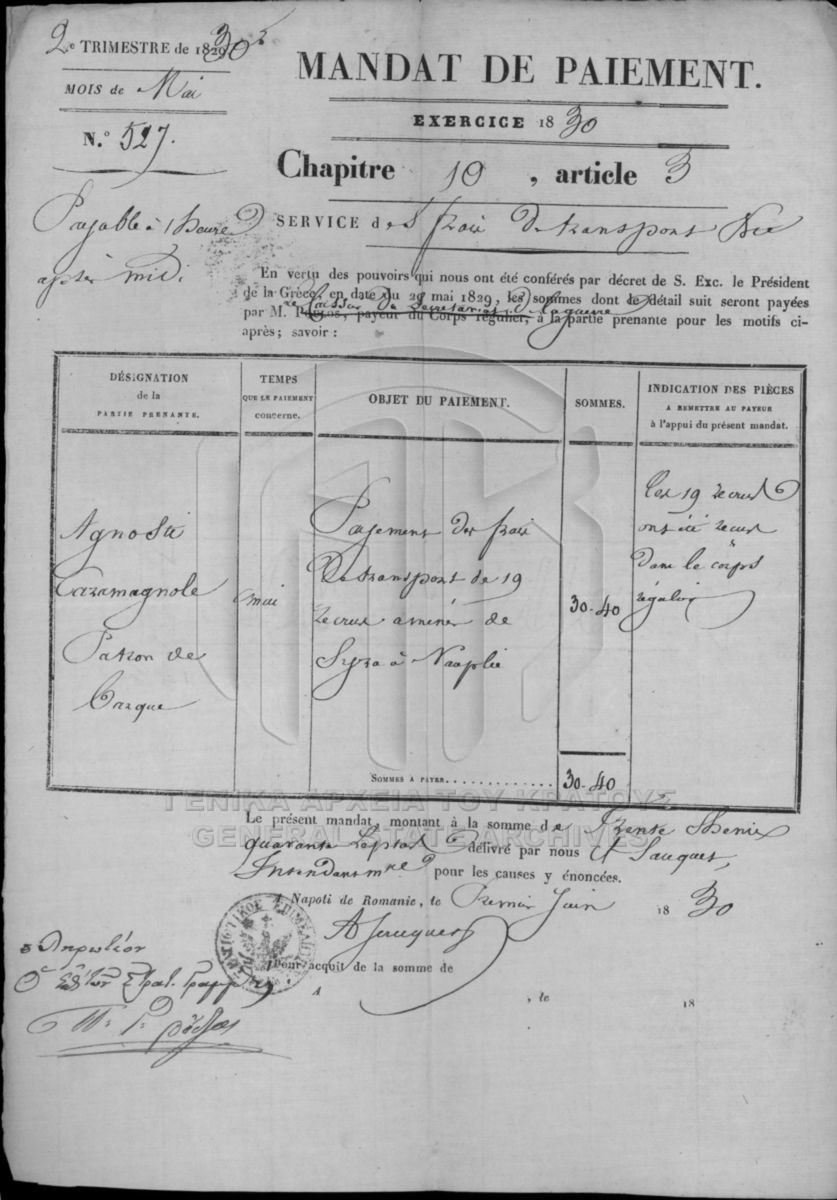 2e TRIMESTRE de 1830
MOIS de Mai
N.° 527.
MANDAT DE PAIEMENT.
EXERCICE 1830
Chapitre 10, article 3
Payable à 1 heure
après midi
SERVICE des frais de transport
En vertu des pouvoirs qui nous ont été conférés par décret de S. Exc. le Président
de la Grèce, en date du 29 mai 1829, les sommes dont le détail suit seront payées
Caissier du Secretariat de la guerre
par M. Rouzos, payeur du Corps régulier, à la partie prenante pour les motifs ci-
après; savoir :
DÉSIGNATION
de la
PARTIE PRENANTE.
TEMPS
QUE LE PAIEMENT
concerne.
OBJET DU PAIEMENT.
SOMMES.
INDICATION DES PIÈCES
A REMETTRE AU PAYEUR
à l'appui du présent mandat.
Agnosti
Caramagnole
Patron de
Barque
mai
Payement des frais
de transport de 19
recrues amenés de
Syra à Nauplie
30-40
Les 19 recrues
ont été recues
dans le corps
régulier
SOMMES A PAYER
30-40
ΓΕΝΙΚΑ ΑΡΧΕΙΑ ΤΟΥ ΚΡΑΤΟΥΣ
GENERAL STATE ARCHIVES
Le présent mandat, montant à la somme de trente Phenix
quarante Leptas délivré par nous A Jauques,
Intendant mre pour les causes y énoncées.
A Napoli de Romanie, le Premier Juin 1830
A Jauques
Pour acquit de la somme de
A , le 18
Πληρωτέον